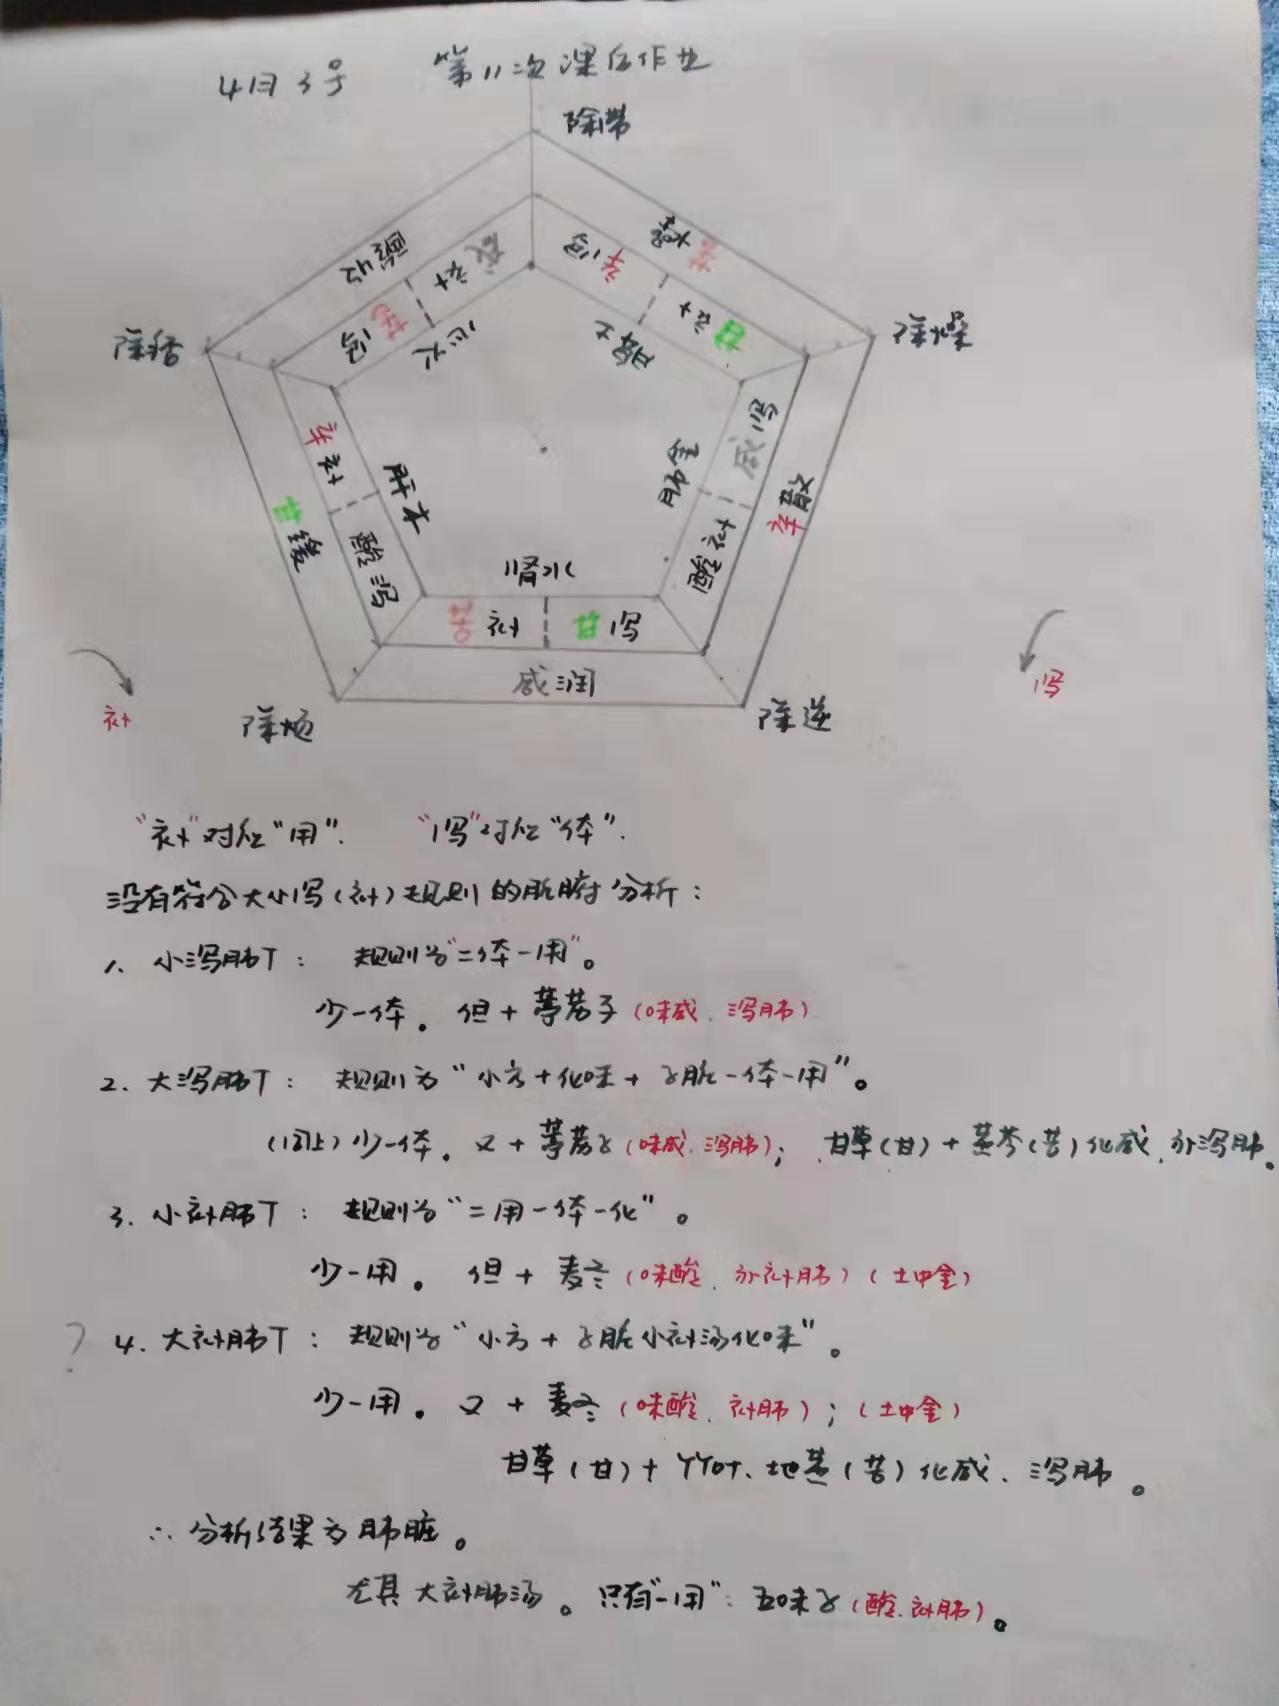 4月3号 第11次课后作业
除滞
酸收
咸补
苦泻
心火
辛泻
甘补
脾土
苦燥
除痞
除燥
辛补
酸泻
肝木
甘缓
咸泻
酸补
肺金
辛散
肾水
苦补
甘泻
咸润
除烦
除逆
补
泻
“补”对应“用”. “泻”对应“体”.
没有符合大小泻(补)规则的脏腑分析:
1. 小泻肺T: 规则为“二体一用”。
少一体. 但+葶苈子(味咸、泻肺)
2. 大泻肺T: 规则为“小方+化味+子脏一体一用”。
(同上)少一体. 又+葶苈子(味咸、泻肺); 甘草(甘)+黄芩(苦)化咸、亦泻肺。
3. 小补肺T: 规则为“二用一体一化”。
少一用. 但+麦冬(味酸、亦补肺)(土中金)
? 4. 大补肺T: 规则为“小方+子脏小补汤化味”。
少一用. 又+麦冬(味酸、补肺);(土中金)
甘草(甘)+竹叶、地黄(苦)化咸、泻肺。
∴分析结果为肺脏。
尤其大补肺汤。只有“一用”: 五味子(酸、补肺)。